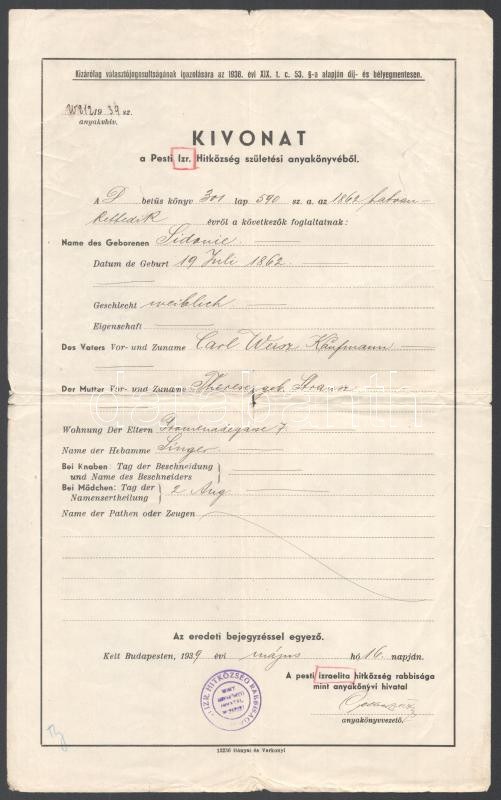 Kizárólag választójogosultságának igazolására az 1938. évi XIX. t. c. 53. §-a alapján díj- és bélyegmentesen.
1939 sz.
anyakvhiv.
KIVONAT
a Pesti Izr. Hitközség születési anyakönyvéből.
A D betüs könyv 301 lap 590 sz. a. az 1862 hatvan-
kettedik évről a következők foglaltatnak:
Name des Geborenen Sidonie
Datum de Geburt 19 Juli 1862
Geschlecht weiblich
Eigenschaft
Des Vaters Vor- und Zuname Carl Weisz Kaufmann
Der Mutter Vor- und Zuname Therese geb. Strasser
darabanth
Wohnung Der Eltern Promenadegasse 7.
Name der Hebamme Singer
Bei Knaben: Tag der Beschneidung
und Name des Beschneiders
Bei Mädchen: Tag der
Namensertheilung 2 Aug.
Name der Pathen oder Zeugen
Az eredeti bejegyzéssel egyező.
Kelt Budapesten, 1939 évi május hó 16. napján.
A pesti izraelita hitközség rabbisága
mint anyakönyvi hivatal
anyakönyvvezető.
IZR. HITKÖZSÉG RABBISÁGA
13236 Bányai és Várkonyi